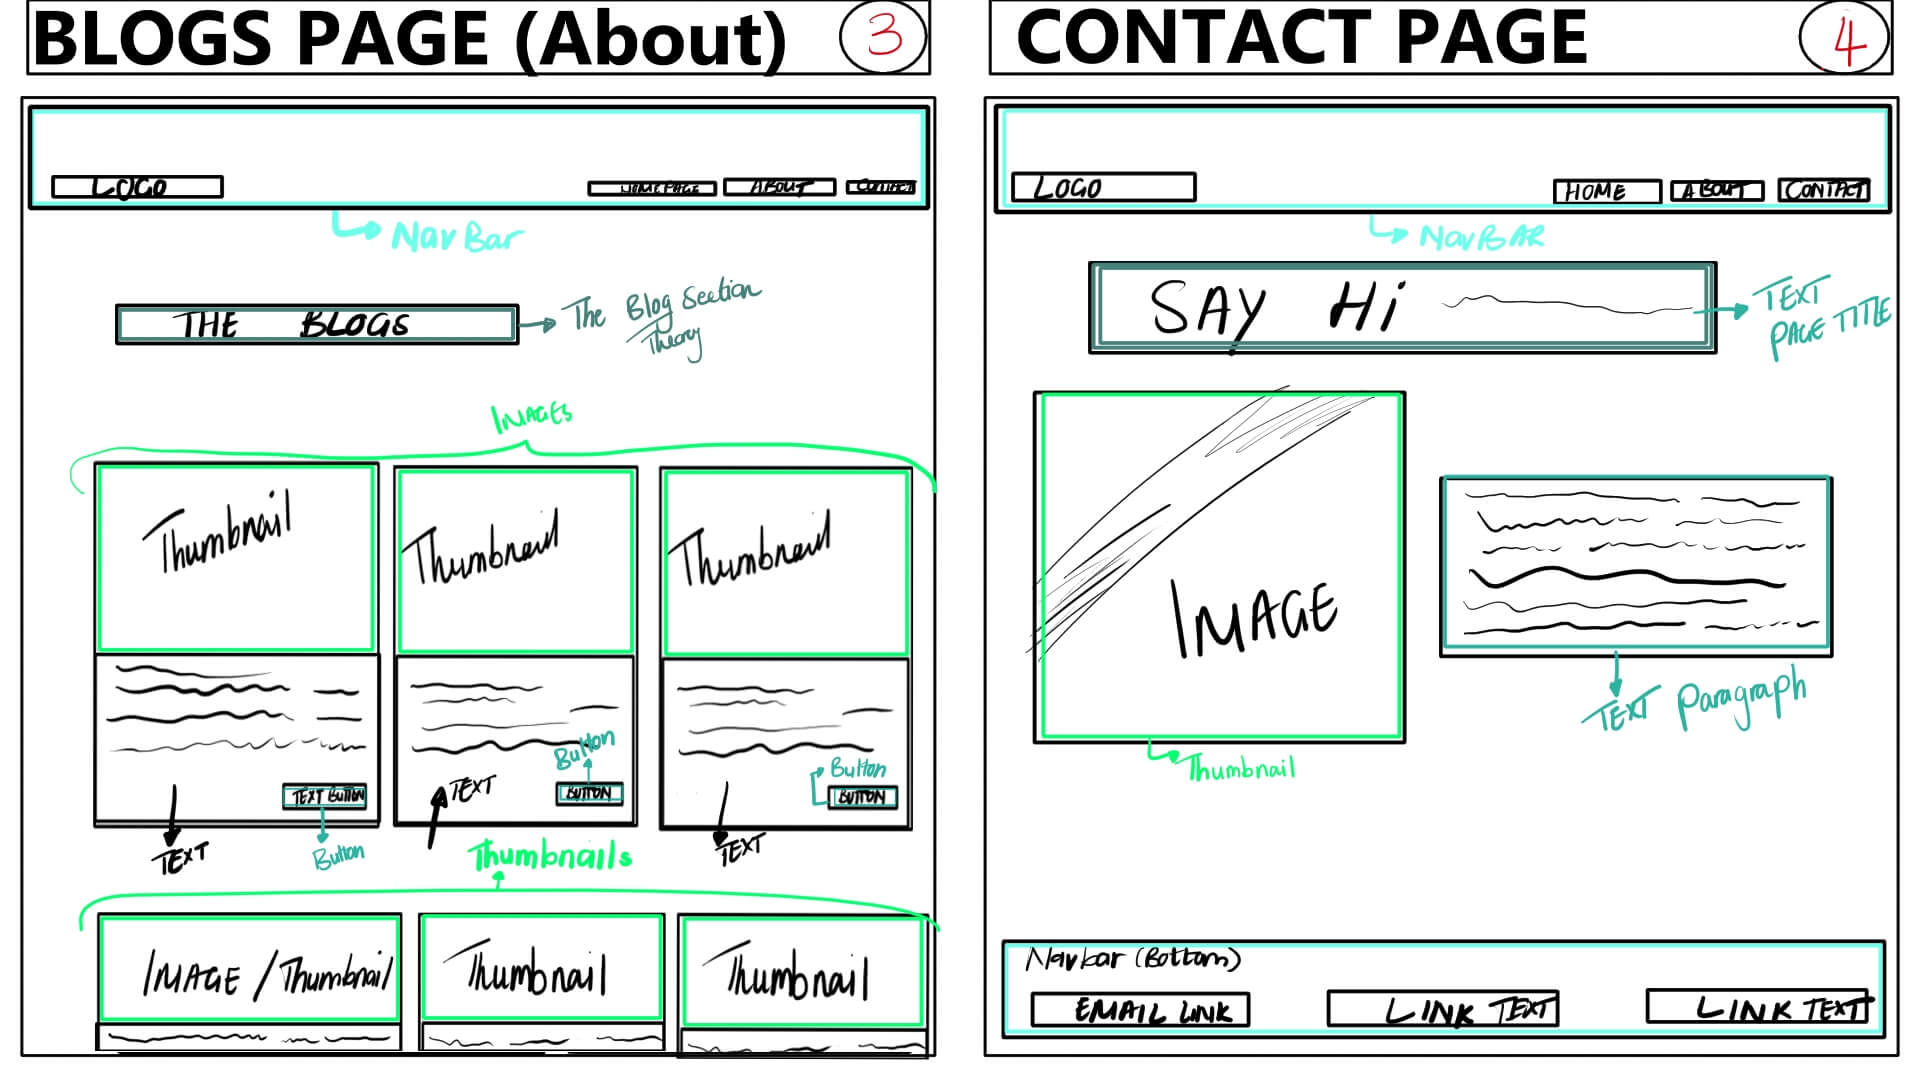 BLOGS PAGE (About) 3
LOGO HOMEPAGE ABOUT CONTACT
NavBar
THE BLOGS
The Blog Section
Theory
IMAGES
Thumbnail Thumbnail Thumbnail
Button
Button
TEXT BUTTON TEXT BUTTON BUTTON
TEXT Button TEXT
Thumbnails
IMAGE / Thumbnail Thumbnail Thumbnail
CONTACT PAGE 4
LOGO HOME ABOUT CONTACT
NavBAR
SAY Hi
TEXT
PAGE TITLE
IMAGE
Thumbnail
TEXT Paragraph
Navbar (Bottom)
EMAIL LINK LINK TEXT LINK TEXT